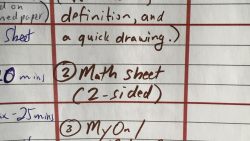 d on
ned paper)
Sheet
0 mins
ax - 25 mins
definition, and
a quick drawing.)
② Math sheet
(2-sided)
③ MyOn/